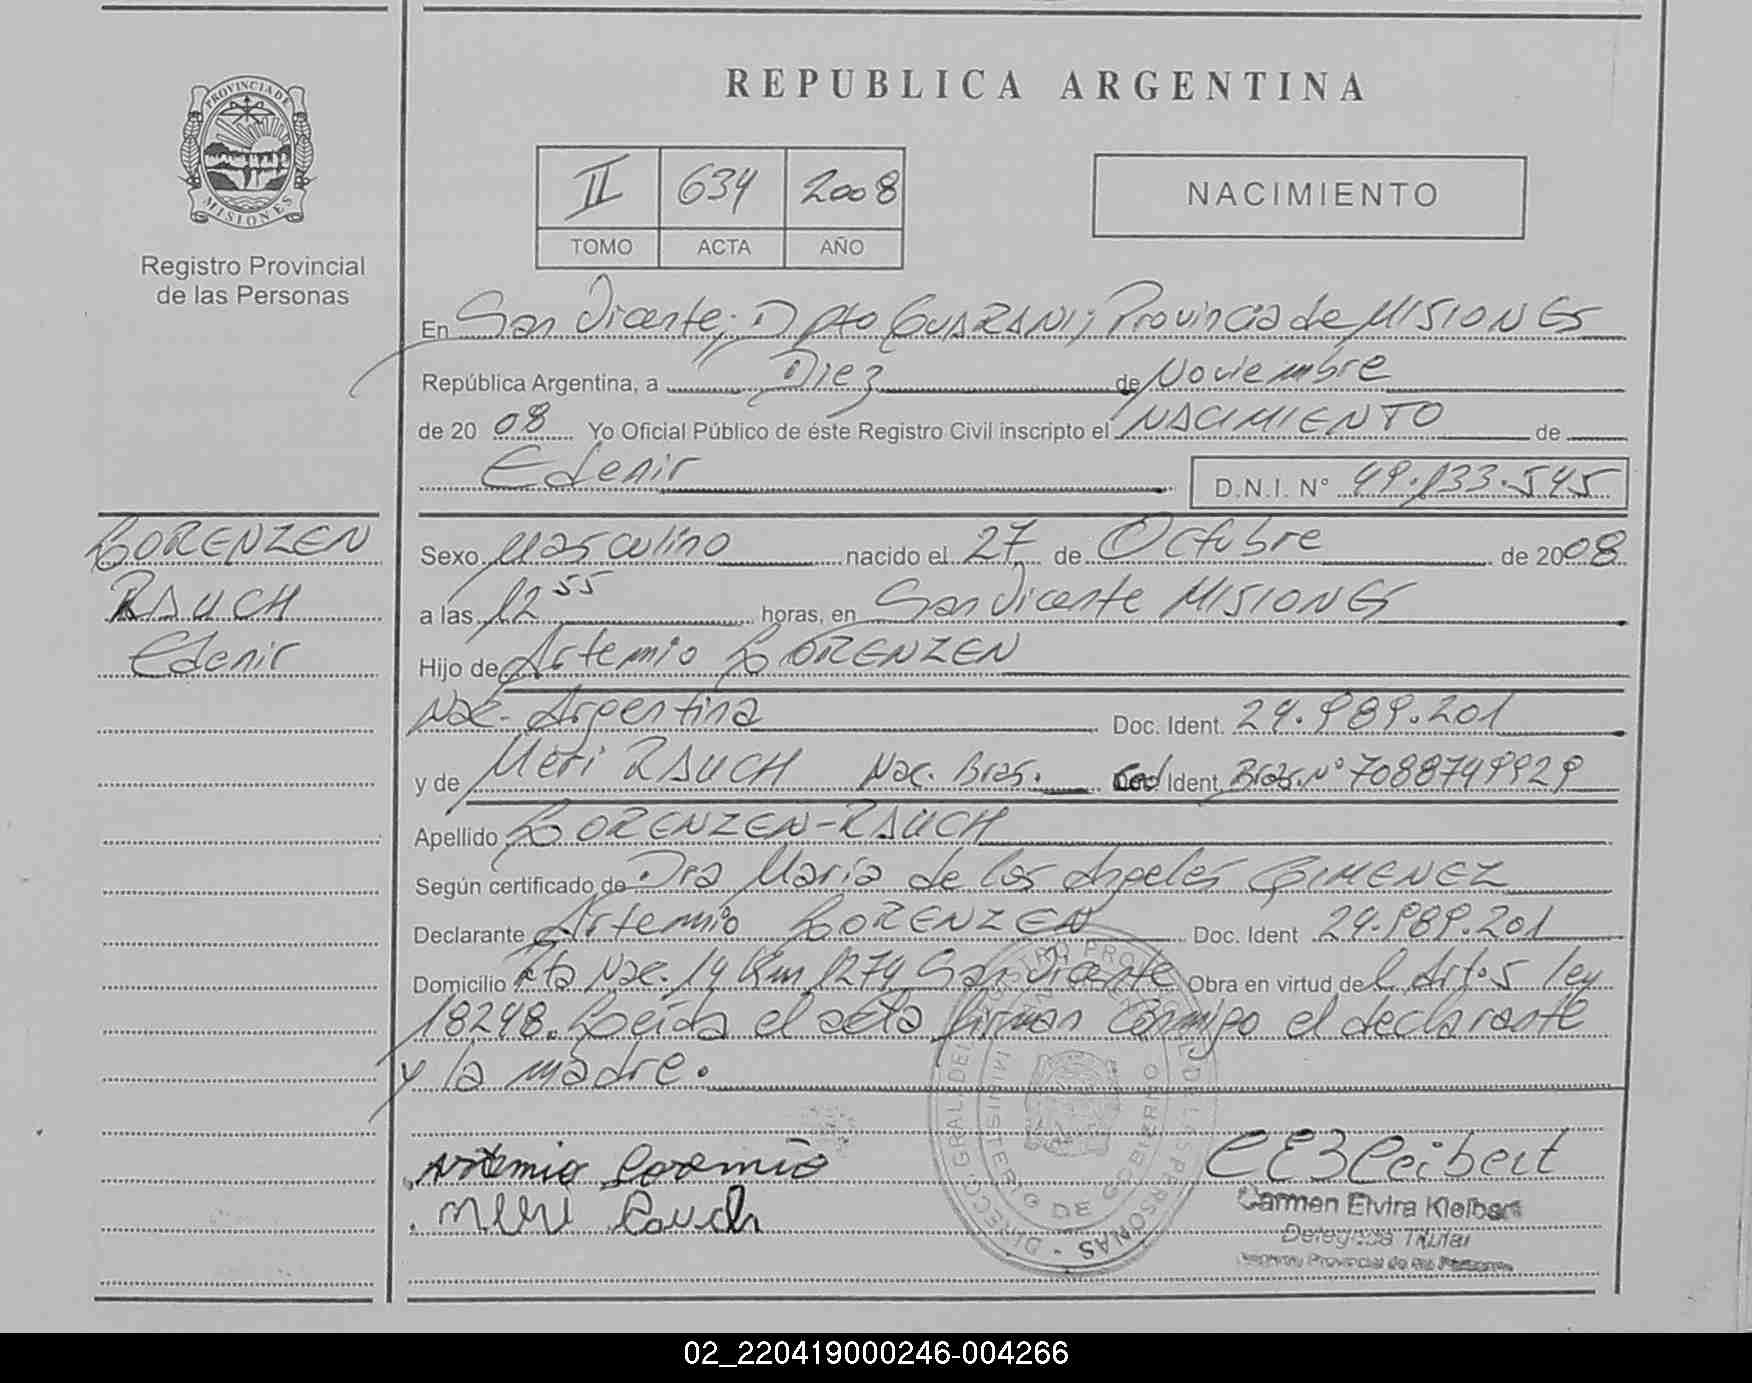 REPUBLICA ARGENTINA
PROVINCIA DE
MISIONES
Registro Provincial
de las Personas
II 634 2008
TOMO ACTA AÑO
NACIMIENTO
En San Vicente; Dpto GUARANI; Provincia de MISIONES
República Argentina, a Diez de Noviembre
de 20 08 Yo Oficial Público de éste Registro Civil inscripto el NACIMIENTO de
Edenir D.N.I. Nº 49.133.545
LORENZEN
RAUCH
Edenir
Sexo Masculino nacido el 27 de Octubre de 2008
a las 12 55 horas, en San Vicente MISIONES
Hijo de Artemio LORENZEN
Nac. Argentina Doc. Ident. 24.989.201
y de Meri RAUCH Nac. Bras. Ced Ident. Bras. Nº 7088749929
Apellido LORENZEN-RAUCH
Según certificado de Dra Maria de los Angeles GIMENEZ
Declarante Artemio LORENZEN Doc. Ident 24.989.201
Domicilio Rta Nac. 14 Km 1274 San Vicente Obra en virtud de l Art. 5 ley
18248. Leída el acta firman conmigo el declarante
y la madre.
Artemio
Meri Rauch
Carmen Elvira Kleibert
Delegada Titular
Registro Provincial de las Personas
02_220419000246-004266